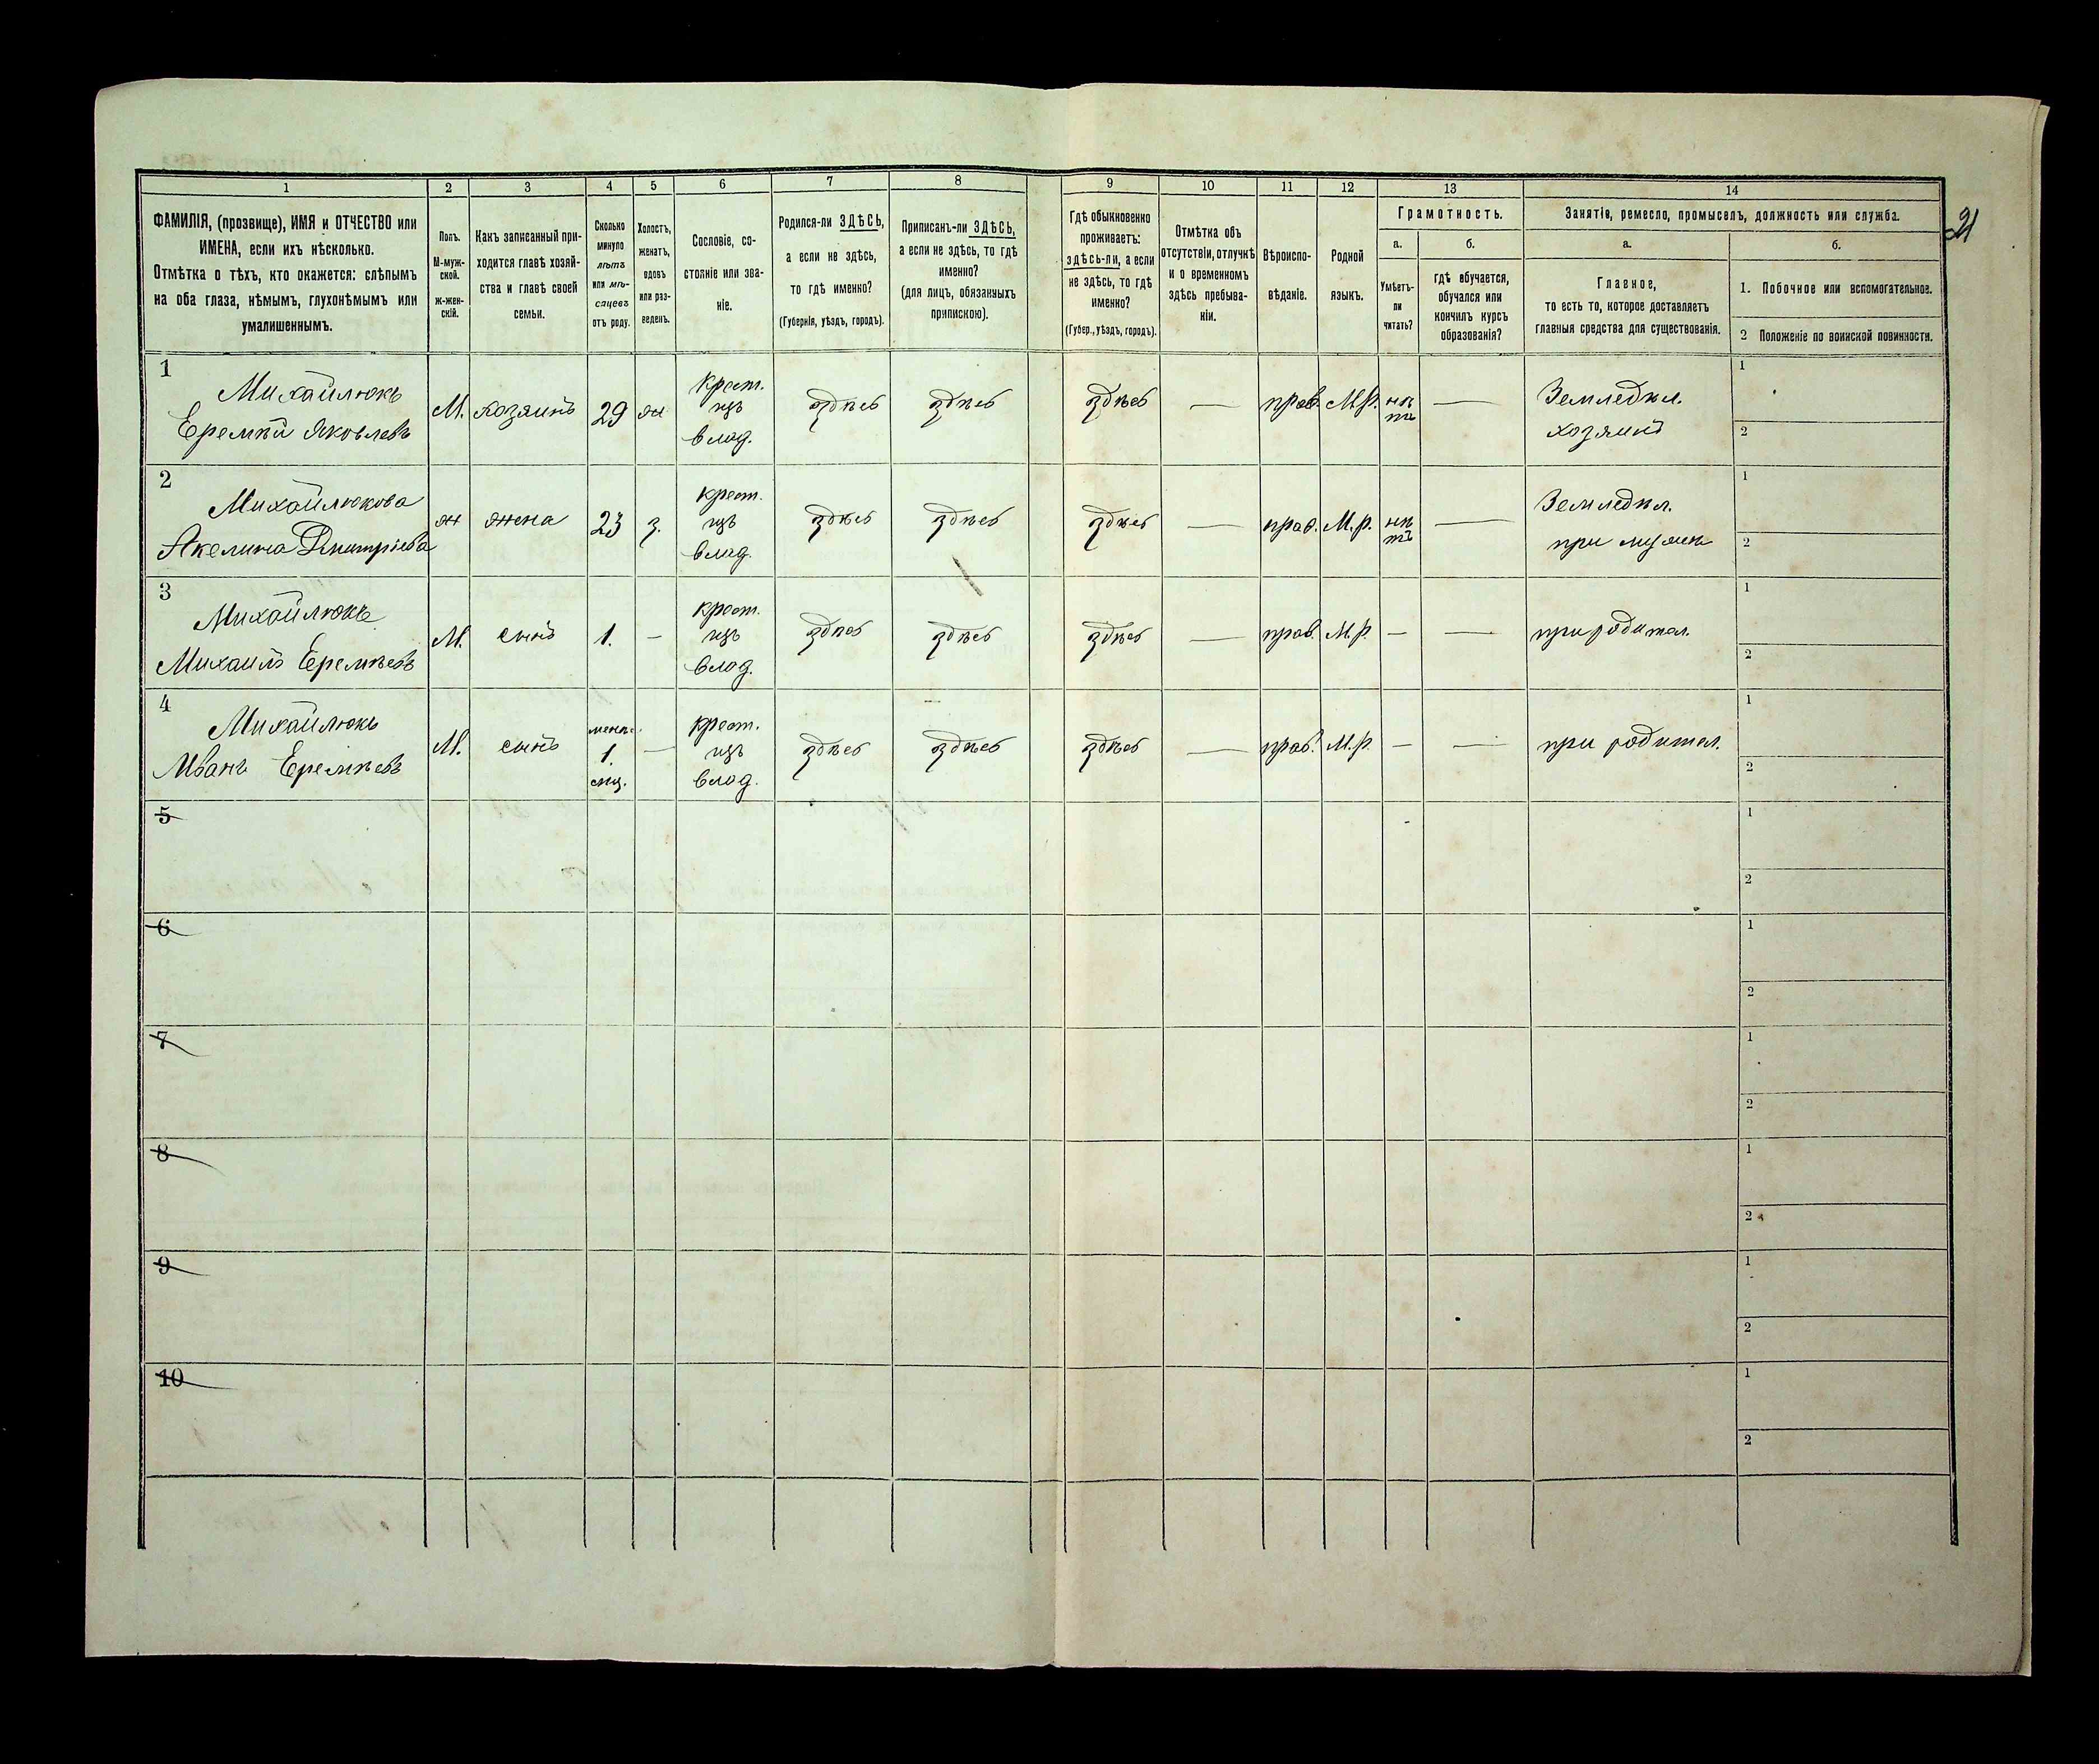 1 2 3 4 5 6 7 8 9 10 11 12 13 14
ФАМИЛІЯ, (прозвище), ИМЯ и ОТЧЕСТВО или
ИМЕНА, если ихъ нѣсколько.
Отмѣтка о тѣхъ, кто окажется: слѣпымъ
на оба глаза, нѣмымъ, глухонѣмымъ или
умалишеннымъ.
Полъ.
М-муж-
ской.
ж-жен-
скій.
Какъ записанный при-
ходится главѣ хозяй-
ства и главѣ своей
семьи.
Сколько
минуло
лѣтъ
или мѣ-
сяцевъ
отъ роду.
Холостъ,
женатъ,
вдовъ
или раз-
веденъ.
Сословіе, со-
стояніе или зва-
ніе.
Родился-ли ЗДѢСЬ,
а если не здѣсь,
то гдѣ именно?
(Губернія, уѣздъ, городъ).
Приписанъ-ли ЗДѢСЬ,
а если не здѣсь, то гдѣ
именно?
(для лицъ, обязанныхъ
припискою).
Гдѣ обыкновенно
проживаетъ:
здѣсь-ли, а если
не здѣсь, то гдѣ
именно?
(Губер., уѣздъ, городъ).
Отмѣтка объ
отсутствіи, отлучкѣ
и о временномъ
здѣсь пребыва-
ніи.
Вѣроиспо-
вѣданіе.
Родной
языкъ.
Грамотность.
а.
Умѣетъ-
ли
читать?
б.
гдѣ обучается,
обучался или
кончилъ курсъ
образованія?
Занятіе, ремесло, промыселъ, должность или служба.
а.
Главное,
то есть то, которое доставляетъ
главныя средства для существованія.
б.
1. Побочное или вспомогательное.
2 Положеніе по воинской повинности.
21
1
Михайлюкъ
Еремѣй Яковлевъ
М.
хозяинъ
29
ж
крест.
изъ
влад.
здѣсь
здѣсь
здѣсь
—
прав.
М.р.
нѣ
тъ
—
Земледѣл.
хозяинъ
1
2
2
Михайлюкова
Акелина Дмитріева
ж
жена
23
з.
крест.
изъ
влад.
здѣсь
здѣсь
здѣсь
—
прав.
М.р.
нѣ
тъ
—
Земледѣл.
при мужѣ
1
2
3
Михайлюкъ
Михаилъ Еремѣевъ
М.
сынъ
1.
—
крест.
изъ
влад.
здѣсь
здѣсь
здѣсь
—
прав.
М.р.
—
—
при родител.
1
2
4
Михайлюкъ
Иванъ Еремѣевъ
М.
сынъ
менѣе
1.
мц.
—
крест.
изъ
влад.
здѣсь
здѣсь
здѣсь
—
прав.
М.р.
—
—
при родител.
1
2
5
1
2
6
1
2
7
1
2
8
1
2
9
1
2
10
1
2